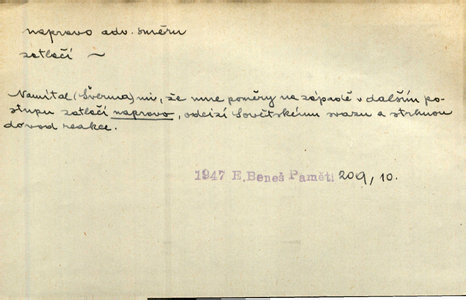 napravo adv. směru
zatlačí ~
Namítal (Šverma) mi, že mne poměry na západě v dalším po-
stupu zatlačí napravo, odcizí Sovětskému svazu a strhnou
do vod reakce.
1947 E. Beneš Paměti 209, 10.